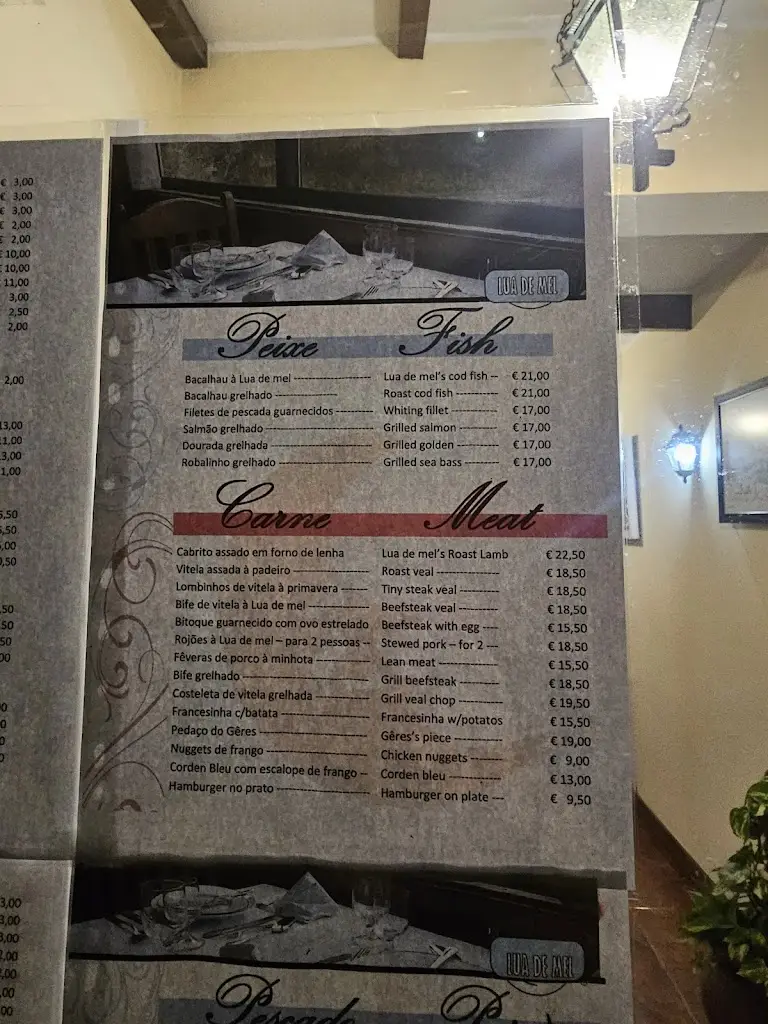 € 3,00
€ 3,00
€ 3,00
€ 2,00
€ 2,00
€ 10,00
€ 10,00
€ 11,00
3,00
2,50
2,00
2,00
LUA DE MEL
Peixe Fish
Bacalhau à Lua de mel ---------------------- Lua de mel's cod fish -- € 21,00
Bacalhau grelhado ------------------ Roast cod fish ----------- € 21,00
Filetes de pescada guarnecidos ----------- Whiting fillet ------------ € 17,00
Salmão grelhado ------------------------------ Grilled salmon ------- € 17,00
Dourada grelhada ----------------------------- Grilled golden --------- € 17,00
Robalinho grelhado -------------------------- Grilled sea bass --------- € 17,00
Carne Meat
Cabrito assado em forno de lenha Lua de mel's Roast Lamb € 22,50
Vitela assada à padeiro ---------------------- Roast veal ----------------- € 18,50
Lombinhos de vitela à primavera ------- Tiny steak veal ---------- € 18,50
Bife de vitela à Lua de mel ----------------- Beefsteak veal ----------- € 18,50
Bitoque guarnecido com ovo estrelado Beefsteak with egg ---- € 15,50
Rojões à Lua de mel – para 2 pessoas -- Stewed pork – for 2 --- € 18,50
Fêveras de porco à minhota --------------- Lean meat ---------------- € 15,50
Bife grelhado ----------------------------------- Grill beefsteak ----------- € 18,50
Costeleta de vitela grelhada --------------- Grill veal chop ----------- € 19,50
Francesinha c/batata ------------------------- Francesinha w/potatos € 15,50
Pedaço do Gêres ------------------------------- Gêres's piece ------------ € 19,00
Nuggets de frango ----------------------------- Chicken nuggets -------- € 9,00
Corden Bleu com escalope de frango -- Corden bleu ------------- € 13,00
Hamburger no prato -------------------------- Hamburger on plate --- € 9,50
LUA DE MEL
Pescado